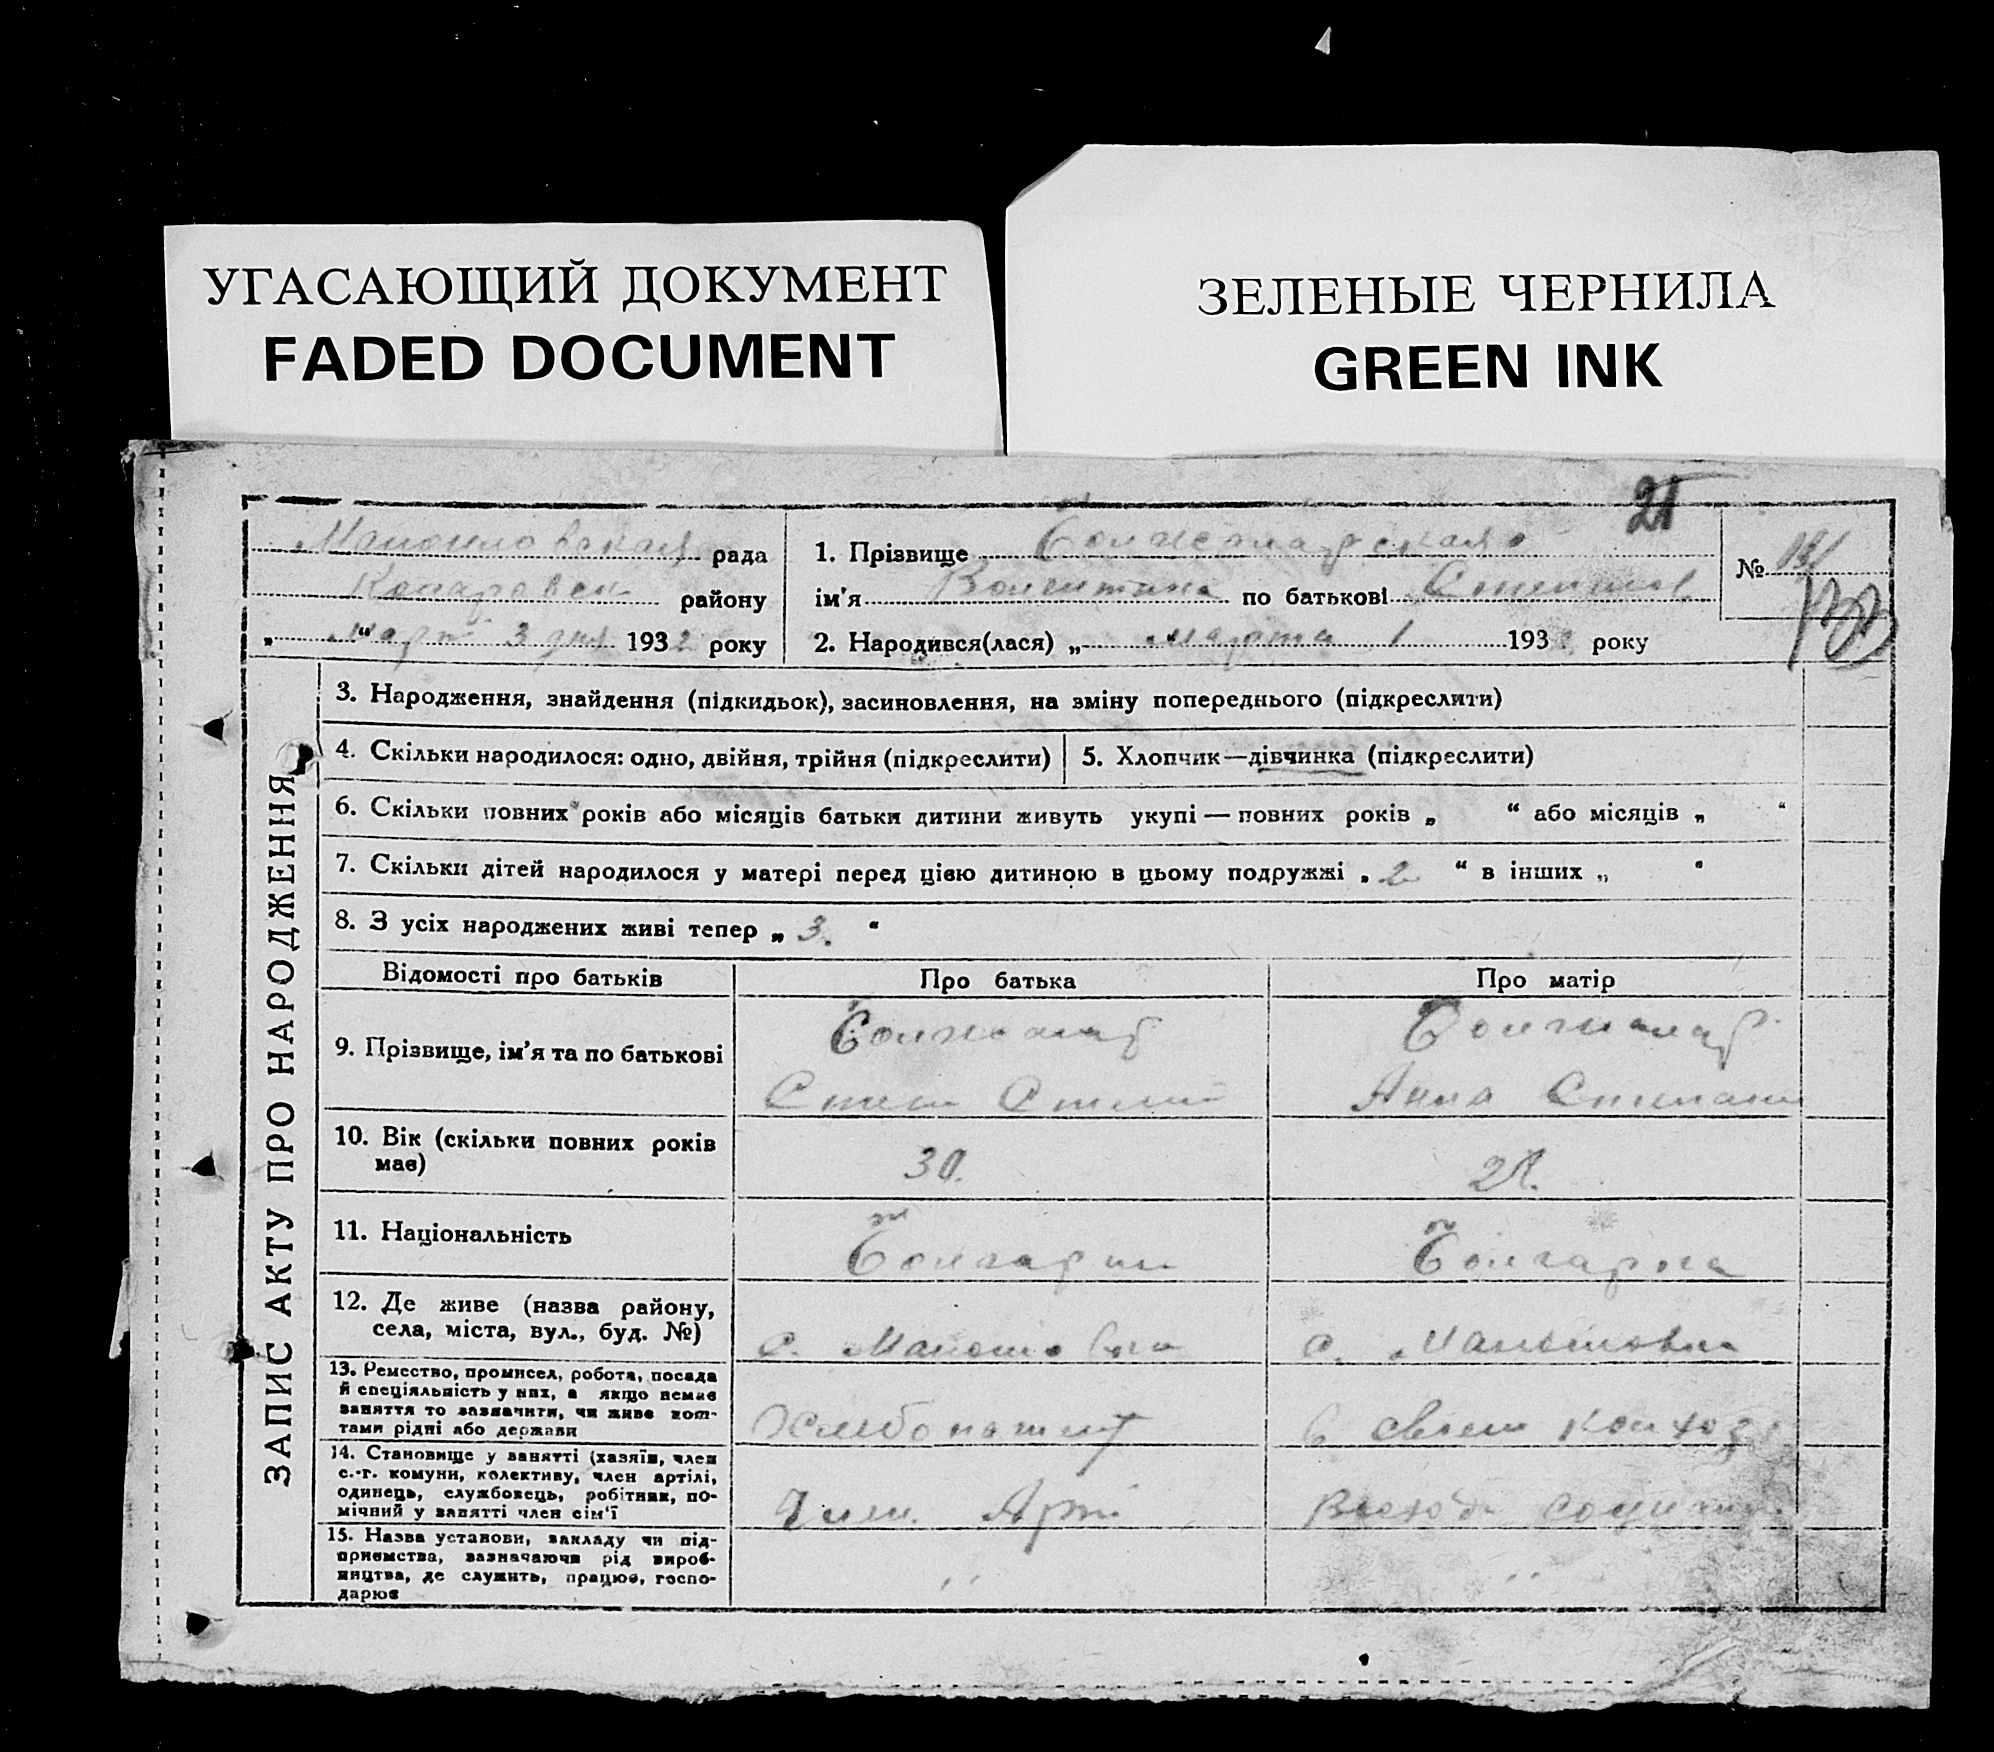 УГАСАЮЩИЙ ДОКУМЕНТ
FADED DOCUMENT
ЗЕЛЕНЫЕ ЧЕРНИЛА
GREEN INK
21
рада
району
„ “ март 3 дня 1932 року
1. Прізвище
ім'я по батькові
2. Народився(лася) „ “ марта 1 193 року
№ 131
ЗАПИС АКТУ ПРО НАРОДЖЕННЯ
3. Народження, знайдення (підкидьок), засиновлення, на зміну попереднього (підкреслити)
4. Скільки народилося: одно, двійня, трійня (підкреслити)
5. Хлопчик—дівчинка (підкреслити)
6. Скільки повних років або місяців батьки дитини живуть укупі — повних років „ “ або місяців „ “
7. Скільки дітей народилося у матері перед цією дитиною в цьому подружжі „ 2 “ в інших „ “
8. З усіх народжених живі тепер „ 3. “
Відомості про батьків
Про батька
Про матір
9. Прізвище, ім'я та по батькові
Анна Степан
10. Вік (скільки повних років має)
30.
11. Національність
Болгарин
Болгарка
12. Де живе (назва району,
села, міста, вул., буд. №)
с.
с.
13. Ремество, промисел, робота, посада
й спеціяльність у них, а якщо немає
заняття то зазначити, чи живе кош-
тами рідні або держави
в своем колхоз
14. Становище у занятті (хазяїн, член
с.-г. комуни, колективу, член артілі,
одинець, службовець, робітник, по-
мічний у занятті член сім'ї
Член. Арт
15. Назва установи, закладу чи під-
приємства, зазначаючи рід вироб-
ництва, де служить, працює, госпо-
дарює